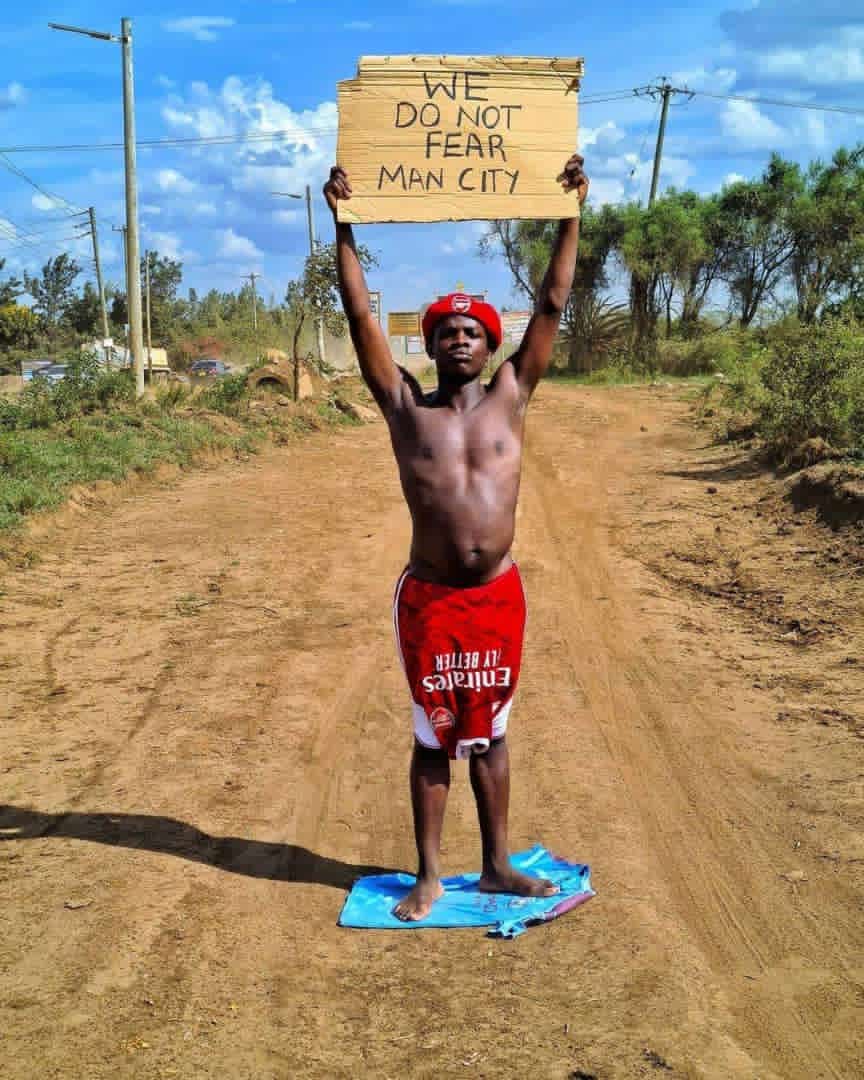 WE
DO NOT
FEAR
MAN CITY
Emirates
FLY BETTER